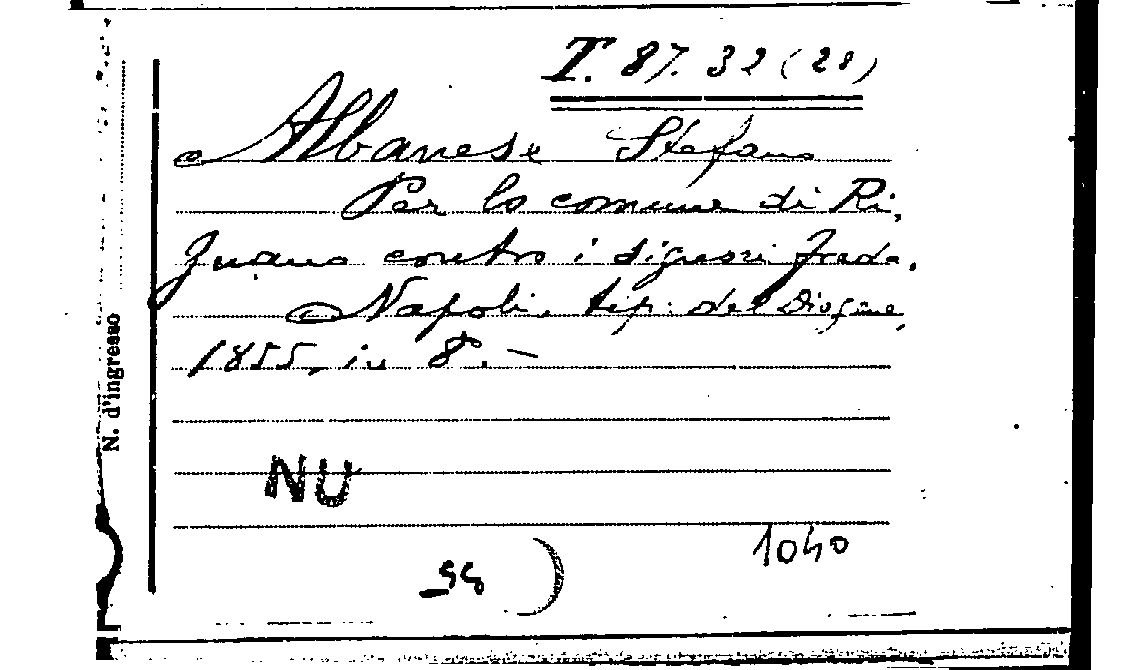 T. 87. 32 (28)
Albanese Stefano
Per lo comune di Ri,
gnano contro i signori
Napoli, tip: del Diogene,
1855, in 8°. —
NU
1040
N. d'ingresso